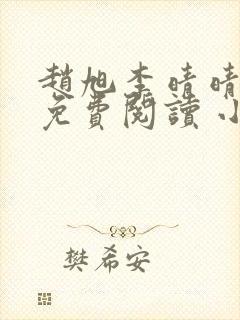 趙旭李晴晴
免費閱讀小
樊希安